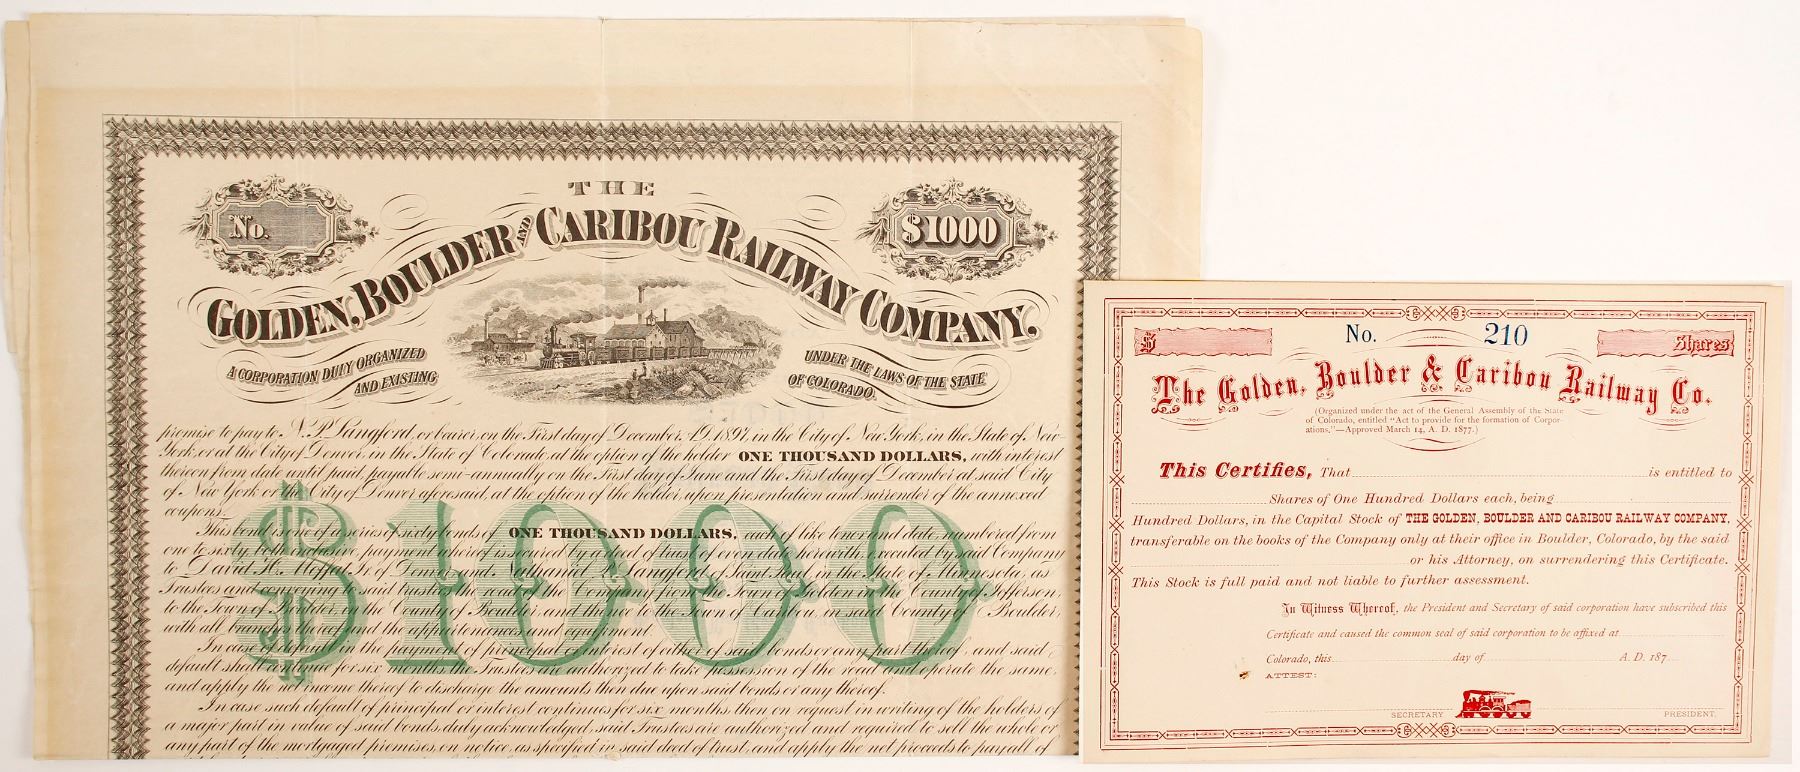 THE
No.
$1000
GOLDEN, BOULDER AND CARIBOU RAILWAY COMPANY.
A CORPORATION DULY ORGANIZED
AND EXISTING
UNDER THE LAWS OF THE STATE
OF COLORADO.
promise to pay to N. P. Langford, or bearer, on the First day of December, A.D. 1897, in the City of New York, in the State of New-
York, or at the City of Denver, in the State of Colorado, at the option of the holder ONE THOUSAND DOLLARS, with interest
thereon from date until paid, payable semi-annually on the First day of June and the First day of December at said City
of New York or the City of Denver aforesaid, at the option of the holder upon presentation and surrender of the annexed
coupons.
$1000
This bond is one of a series of sixty bonds of ONE THOUSAND DOLLARS, each of like tenor and date, numbered from
one to sixty both inclusive, payment whereof is secured by a deed of trust of even date herewith executed by said Company
to David H. Moffat, Jr. of Denver and Nathaniel P. Langford of Saint Paul, in the State of Minnesota, as
Trustees and conveying to said trustees the road of the Company from the Town of Golden in the County of Jefferson,
to the Town of Boulder, in the County of Boulder, and thence to the Town of Caribou, in said County of Boulder,
with all branches thereof and the appurtenances and equipment.
In case of default in the payment of principal or interest of either of said bonds or any part thereof, and said
default shall continue for six months, the Trustees are authorized to take possession of the road and operate the same,
and apply the net income thereof to discharge the amounts then due upon said bonds or any thereof.
In case such default of principal or interest continues for six months, then on request in writing of the holders of
a major part in value of said bonds duly acknowledged, said Trustees are authorized and required to sell the whole or
any part of the mortgaged premises, on notice, as specified in said deed of trust, and apply the net proceeds to pay all of
$
No. 210
Shares
The Golden, Boulder & Caribou Railway Co.
(Organized under the act of the General Assembly of the State
of Colorado, entitled "Act to provide for the formation of Corpor-
ations,"—Approved March 14, A. D. 1877.)
This Certifies, That is entitled to
Shares of One Hundred Dollars each, being
Hundred Dollars, in the Capital Stock of THE GOLDEN, BOULDER AND CARIBOU RAILWAY COMPANY,
transferable on the books of the Company only at their office in Boulder, Colorado, by the said
or his Attorney, on surrendering this Certificate.
This Stock is full paid and not liable to further assessment.
In Witness Whereof, the President and Secretary of said corporation have subscribed this
Certificate and caused the common seal of said corporation to be affixed at
Colorado, this day of A. D. 187
ATTEST:
SECRETARY PRESIDENT.